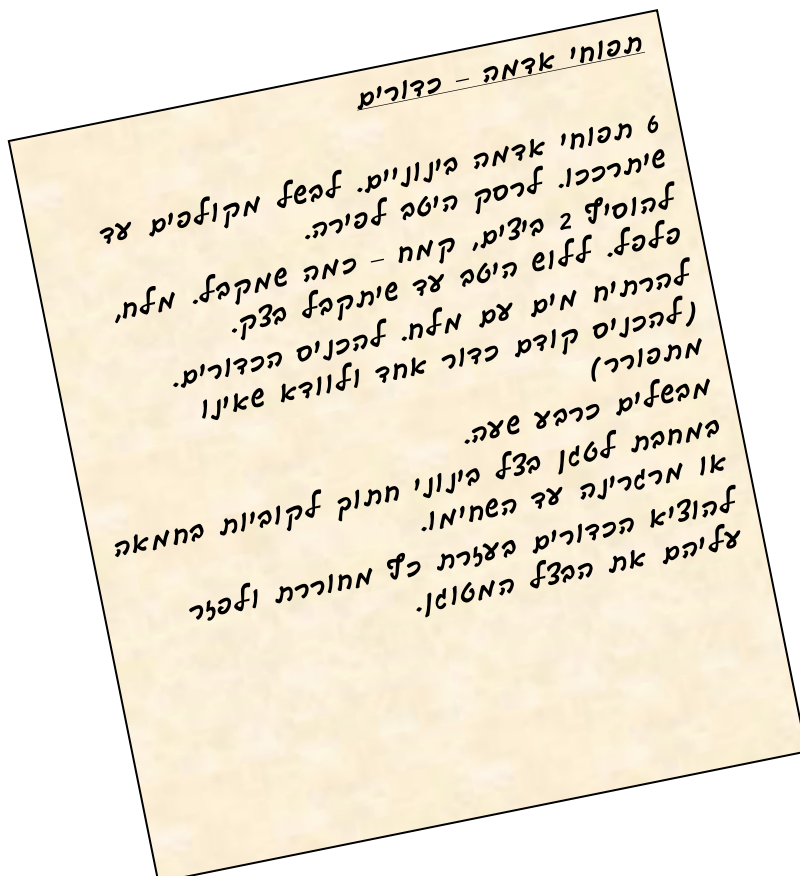 תפוחי אדמה – כדורים
6 תפוחי אדמה בינוניים. לבשל מקולפים עד
שיתרככו. לרסק היטב לפירה.
להוסיף 2 ביצים, קמח – כמה שמקבל. מלח,
פלפל. ללוש היטב עד שיתקבל בצק.
להרתיח מים עם מלח. להכניס הכדורים.
(להכניס קודם כדור אחד ולוודא שאינו
מתפורר)
מבשלים כרבע שעה.
במחבת לטגן בצל בינוני חתוך לקוביות בחמאה
או מרגרינה עד השחימו.
להוציא הכדורים בעזרת כף מחוררת ולפזר
עליהם את הבצל המטוגן.